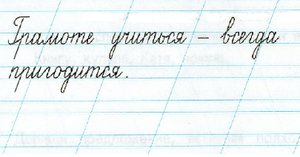 Грамоте учиться – всегда
пригодится.